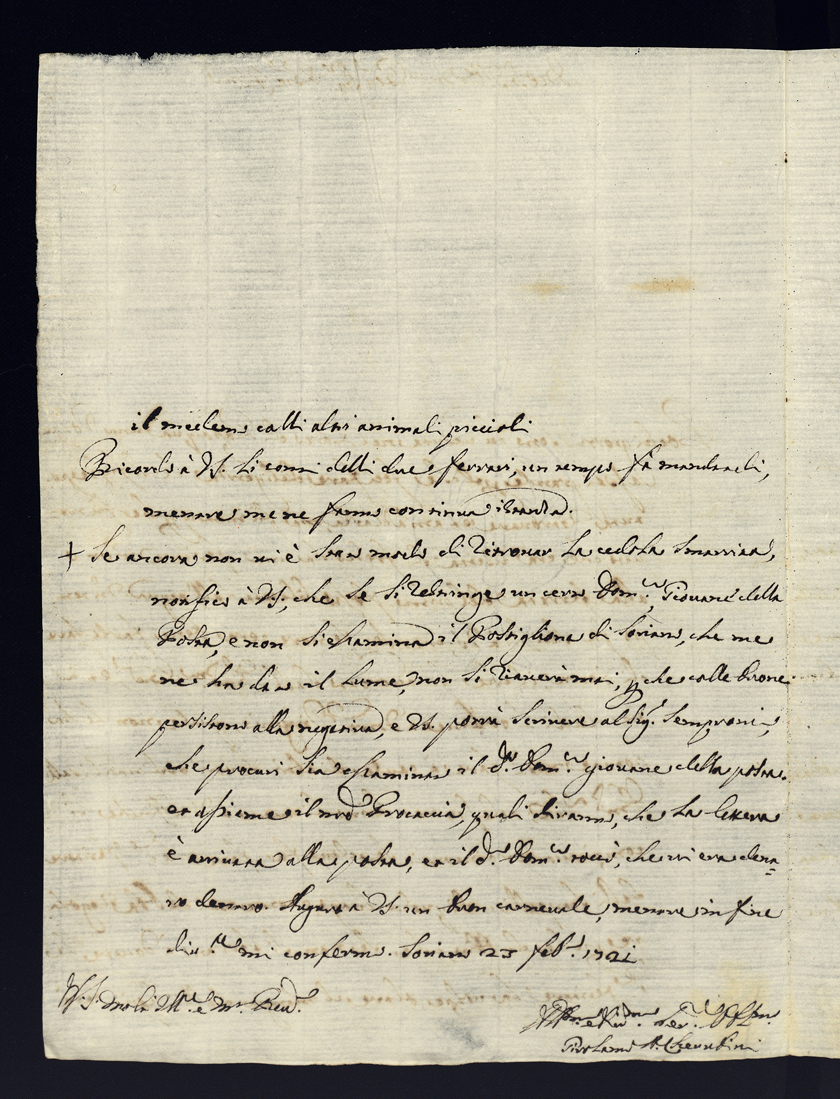 il medemo colli altri animali piccioli
Ricordo à V.S. li conti delli due ferrari, un tempo fà mandateli,
mentre me ne fanno continua istanza.
+ Se ancora non vi è stato modo di ritrovar la cedola smarrita,
notifico à V.S., che se si restringe un certo Dom.co Giovane della
Posta, e non si esamina il Postiglione di Soriano, che me
ne ha dato il lume, non si riaverà mai, p che colle buone
persistono alla negativa, e V.S. potrà scrivere al Sig.r Semproni,
che procuri sia esaminato il d.o Dom.co giovane della posta.
et assieme il nro Procaccia, quali diranno, che la lettera
è arrivata alla posta, et il d.o Dom.co toccò, che vi era dena=
ro dentro. Auguro à V.S. un buon carnevale, mentre in fine
mi confermo. Soriano 23 feb.o 1721
V.S. molto Ill.e e m.o Rev.
Ser.
Cherubini